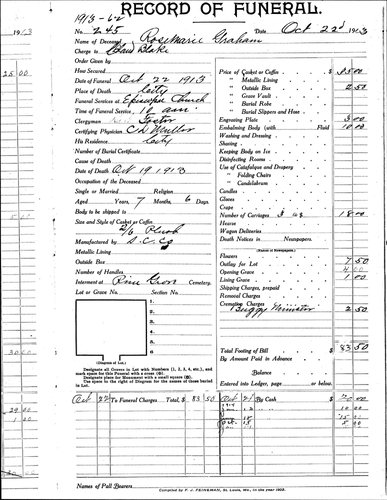 RECORD OF FUNERAL.
1913-62
No. 245 Date Oct 22d 1903
Name of Deceased Rosemarie Graham
Charge to Blake
Order Given by
How Secured
Date of Funeral Oct 22 1913
Place of Death City
Funeral Services at Episcopal Church
Time of Funeral Service, 10 am
Clergyman
Certifying Physician
His Residence City
Number of Burial Certificate
Cause of Death
Date of Death Oct 19 1913
Occupation of the Deceased
Single or Married Religion
Aged Years, 7 Months, 6 Days.
Body to be shipped to
Size and Style of Casket or Coffin
2/6 Plush
Manufactured by
Metallic Lining
Outside Box
Number of Handles
Interment at Cemetery.
Lot or Grave No. Section No.
1.
2.
3.
4.
5.
6
(Diagram of Lot.)
Designate all Graves in Lot with Numbers (1, 2, 3, 4, etc.), and
mark space for this Funeral with a cross (+).
Designate place for Monument with a small square
Use space to the right of Diagram for the names of those buried
in Lot.
Price of Casket or Coffin $ 35 00
" Metallic Lining
" Outside Box 2 50
" Grave Vault
" Burial Robe
" Burial Slippers and Hose
Engraving Plate 3 00
Embalming Body (with Fluid 10 00
Washing and Dressing
Shaving
Keeping Body on Ice
Disinfecting Rooms
Use of Catafalque and Drapery
" Folding Chairs
" Candelabrum
Candles
Gloves
Crape
Number of Carriages 3 18 00
Hearse
Wagon Deliveries
Death Notices in Newspapers.
(Names of Newspapers)
Flowers
Outlay for Lot 7 50
Opening Grave 4 00
Lining Grave 1 00
Shipping Charges, prepaid
Removal Charges
Cremating Charges
Buggy Minister 2 50
Total Footing of Bill $ 83 50
By Amount Paid in Advance
Balance
Entered into Ledger, page or below.
Oct 22 To Funeral Charges Total, $ 83 50 Oct 21 By Cash
Names of Pall Bearers
Compiled by F. J. FEINEMAN, St. Louis, Mo., in the year 1902.
1913
25 00
5 00
30 00
29 00
1 00